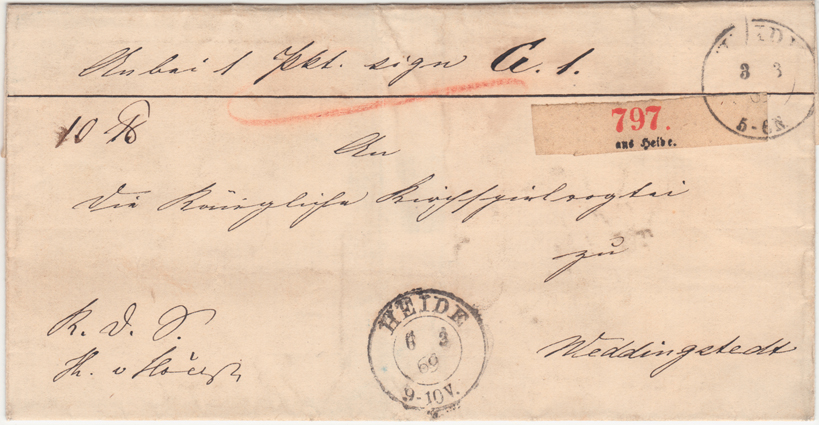 Anbei 1 Pkt. sign C. 1.
3 3
5-6N.
797.
aus Heide.
10 ℔
An
die Königliche Kirchspielvogtei
zu
Weddingstedt
K. D. S.
HEIDE
6 3
69
9-10V.